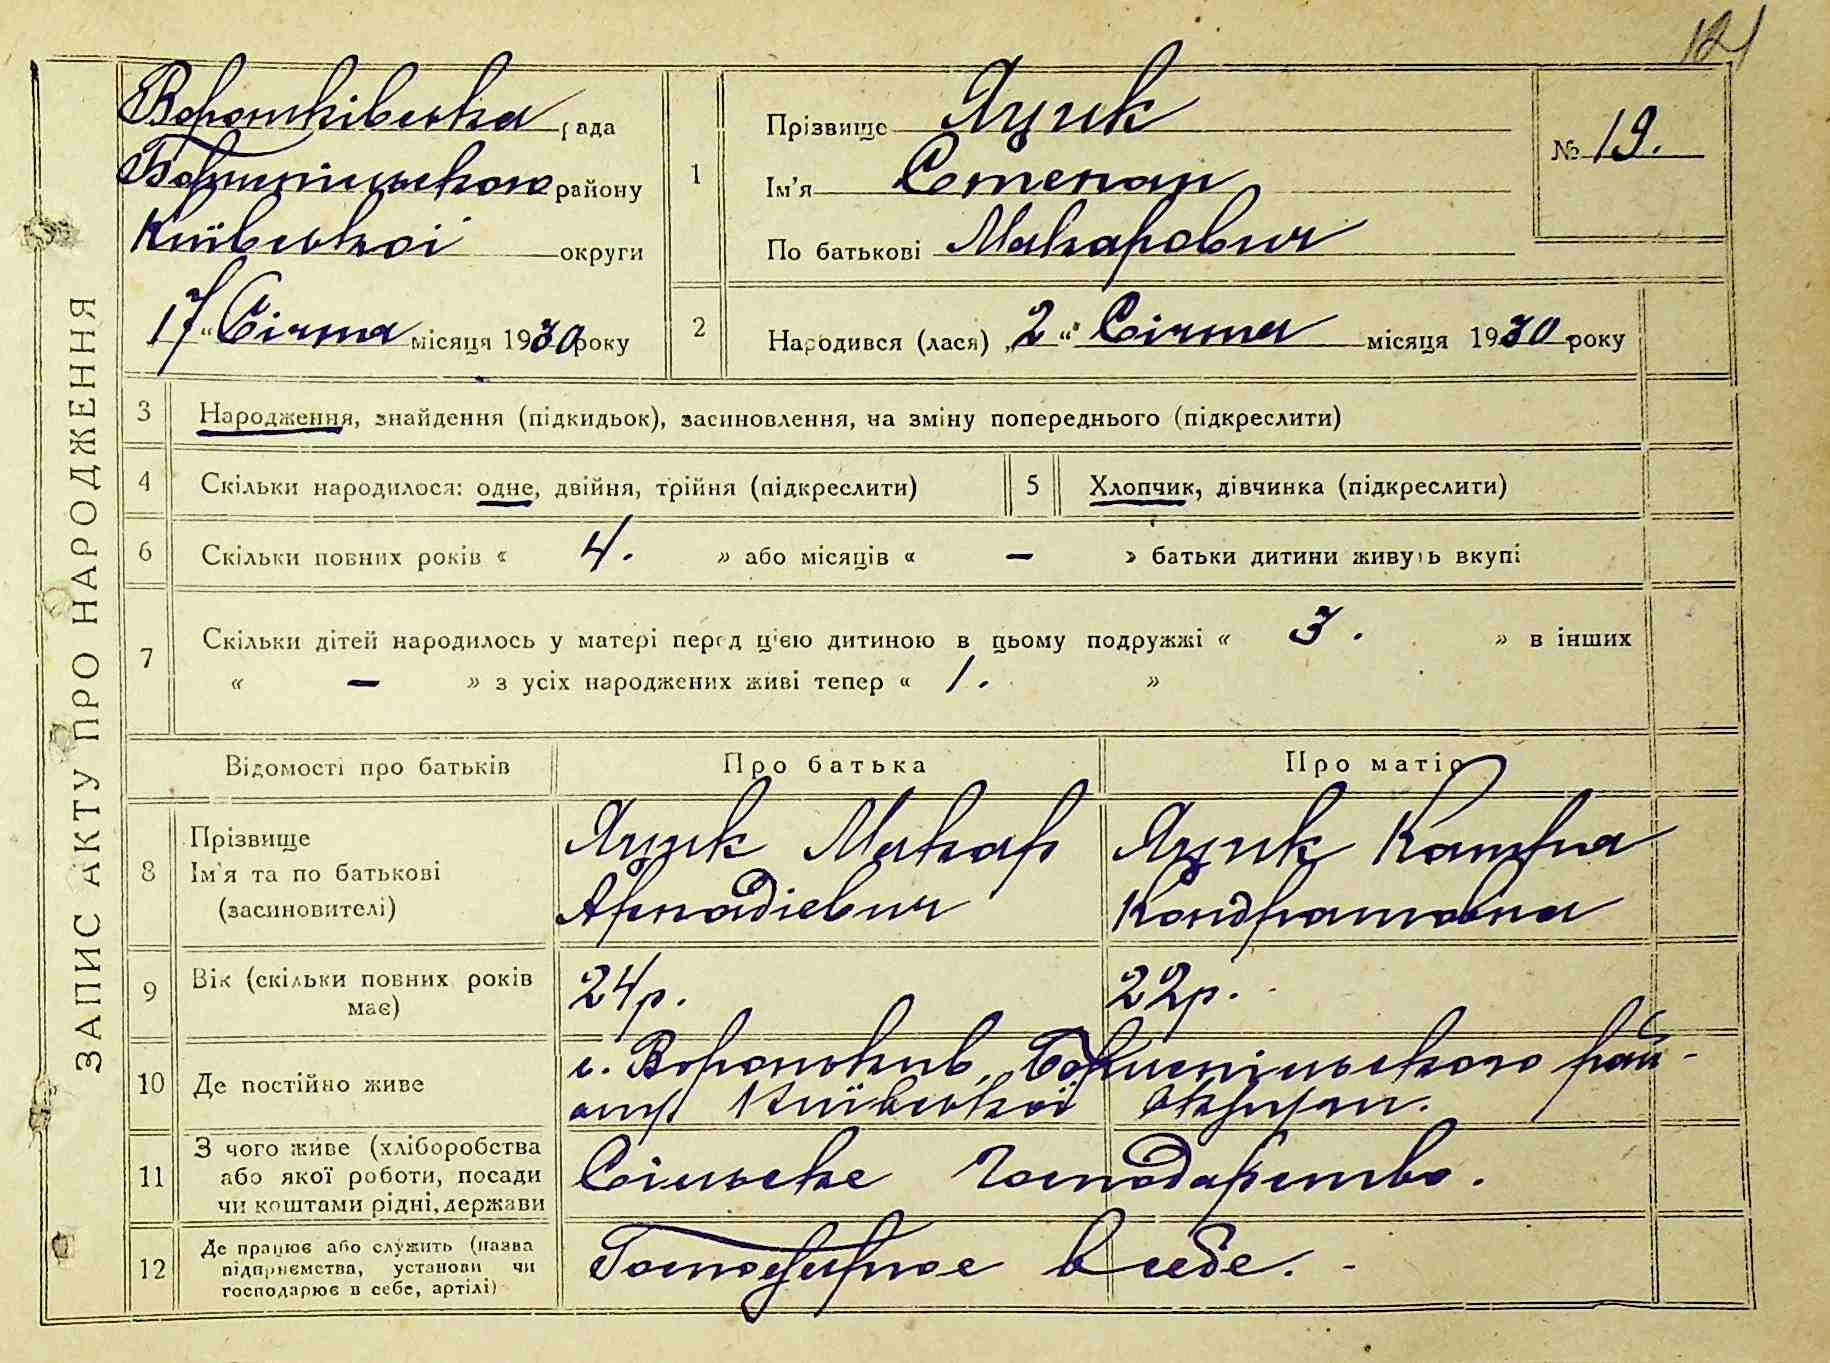 ЗАПИС АКТУ ПРО НАРОДЖЕННЯ
Вороньківська рада
Бориспільського району
Київської округи
17 " Січня місяця 1930 року
1 Прізвище Яцик
Ім'я Степан
По батькові Макарович
№ 19.
2 Народився (лася) „ 2 " Січня місяця 1930 року
3 Народження, знайдення (підкидьок), засиновлення, на зміну попереднього (підкреслити)
4 Скільки народилося: одне, двійня, трійня (підкреслити) 5 Хлопчик, дівчинка (підкреслити)
6 Скільки повних років « 4. » або місяців « – » батьки дитини живуть вкупі
7 Скільки дітей народилось у матері перед цією дитиною в цьому подружжі « 3. » в інших
« – » з усіх народжених живі тепер « 1. »
Відомості про батьків Про батька Про матір
8 Прізвище
Ім'я та по батькові
(засиновителі)
Яцик Макар
Аркадієвич
Яцик Катря
Кондратовна
9 Вік (скільки повних років
має)
24 р. 22 р.
10 Де постійно живе
с. Вороньків, Бориспільського рай-
ону Київської округи.
11 З чого живе (хліборобства
або якої роботи, посади
чи коштами рідні, держави
Сільське господарство.
12 Де працює або служить (назва
підприємства, установи чи
господарює в себе, артілі)
Господарює в себе.